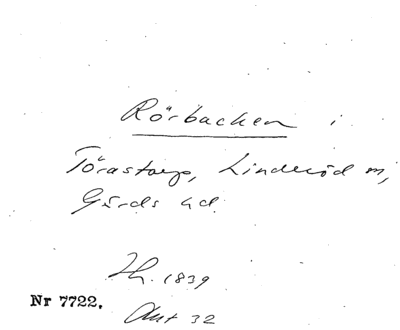 Rörbacken i
Törastorp, Linderöd sn,
Gärds hd.
Jh. 1839
Nr 7722.
Akt 32